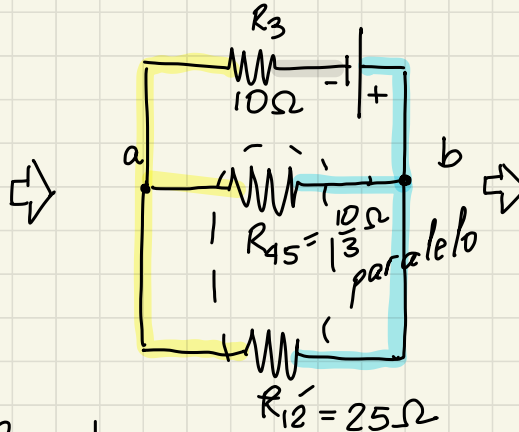 R3
10Ω
- +
a
b
R45 = 10/3 Ω
paralelo
R12 = 25Ω